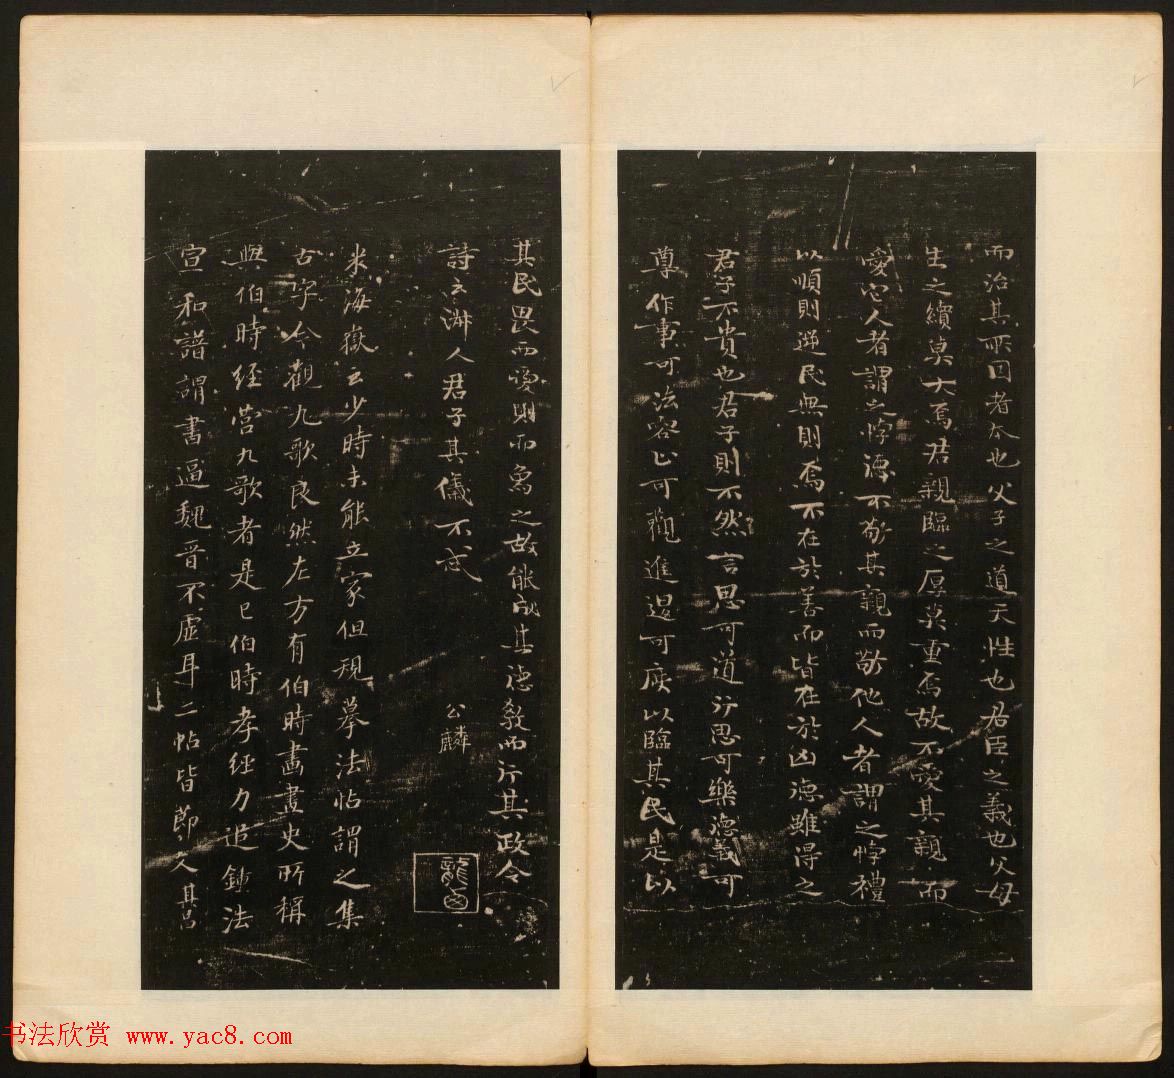 而治其所因者本也父子之道天性也君臣之義也父母
生之續莫大焉君親臨之厚莫重焉故不愛其親而
愛它人者謂之悖德不敬其親而敬他人者謂之悖禮
以順則逆民無則焉不在於善而皆在於凶德雖得之
君子不貴也君子則不然言思可道行思可樂德義可
尊作事可法容止可觀進退可度以臨其民是以
其民畏而愛則而象之故能成其德教而行其政令
詩云淑人君子其儀不忒
公麟
龍西
米海嶽云少時未能立家但規摹法帖謂之集
古字今觀九歌良然左方有伯時畫畫史所稱
與伯時經營九歌者是已伯時孝經力追鍾法
宣和譜謂書逼魏晉不虛耳二帖皆節人其昌
书法欣赏 www.yac8.com